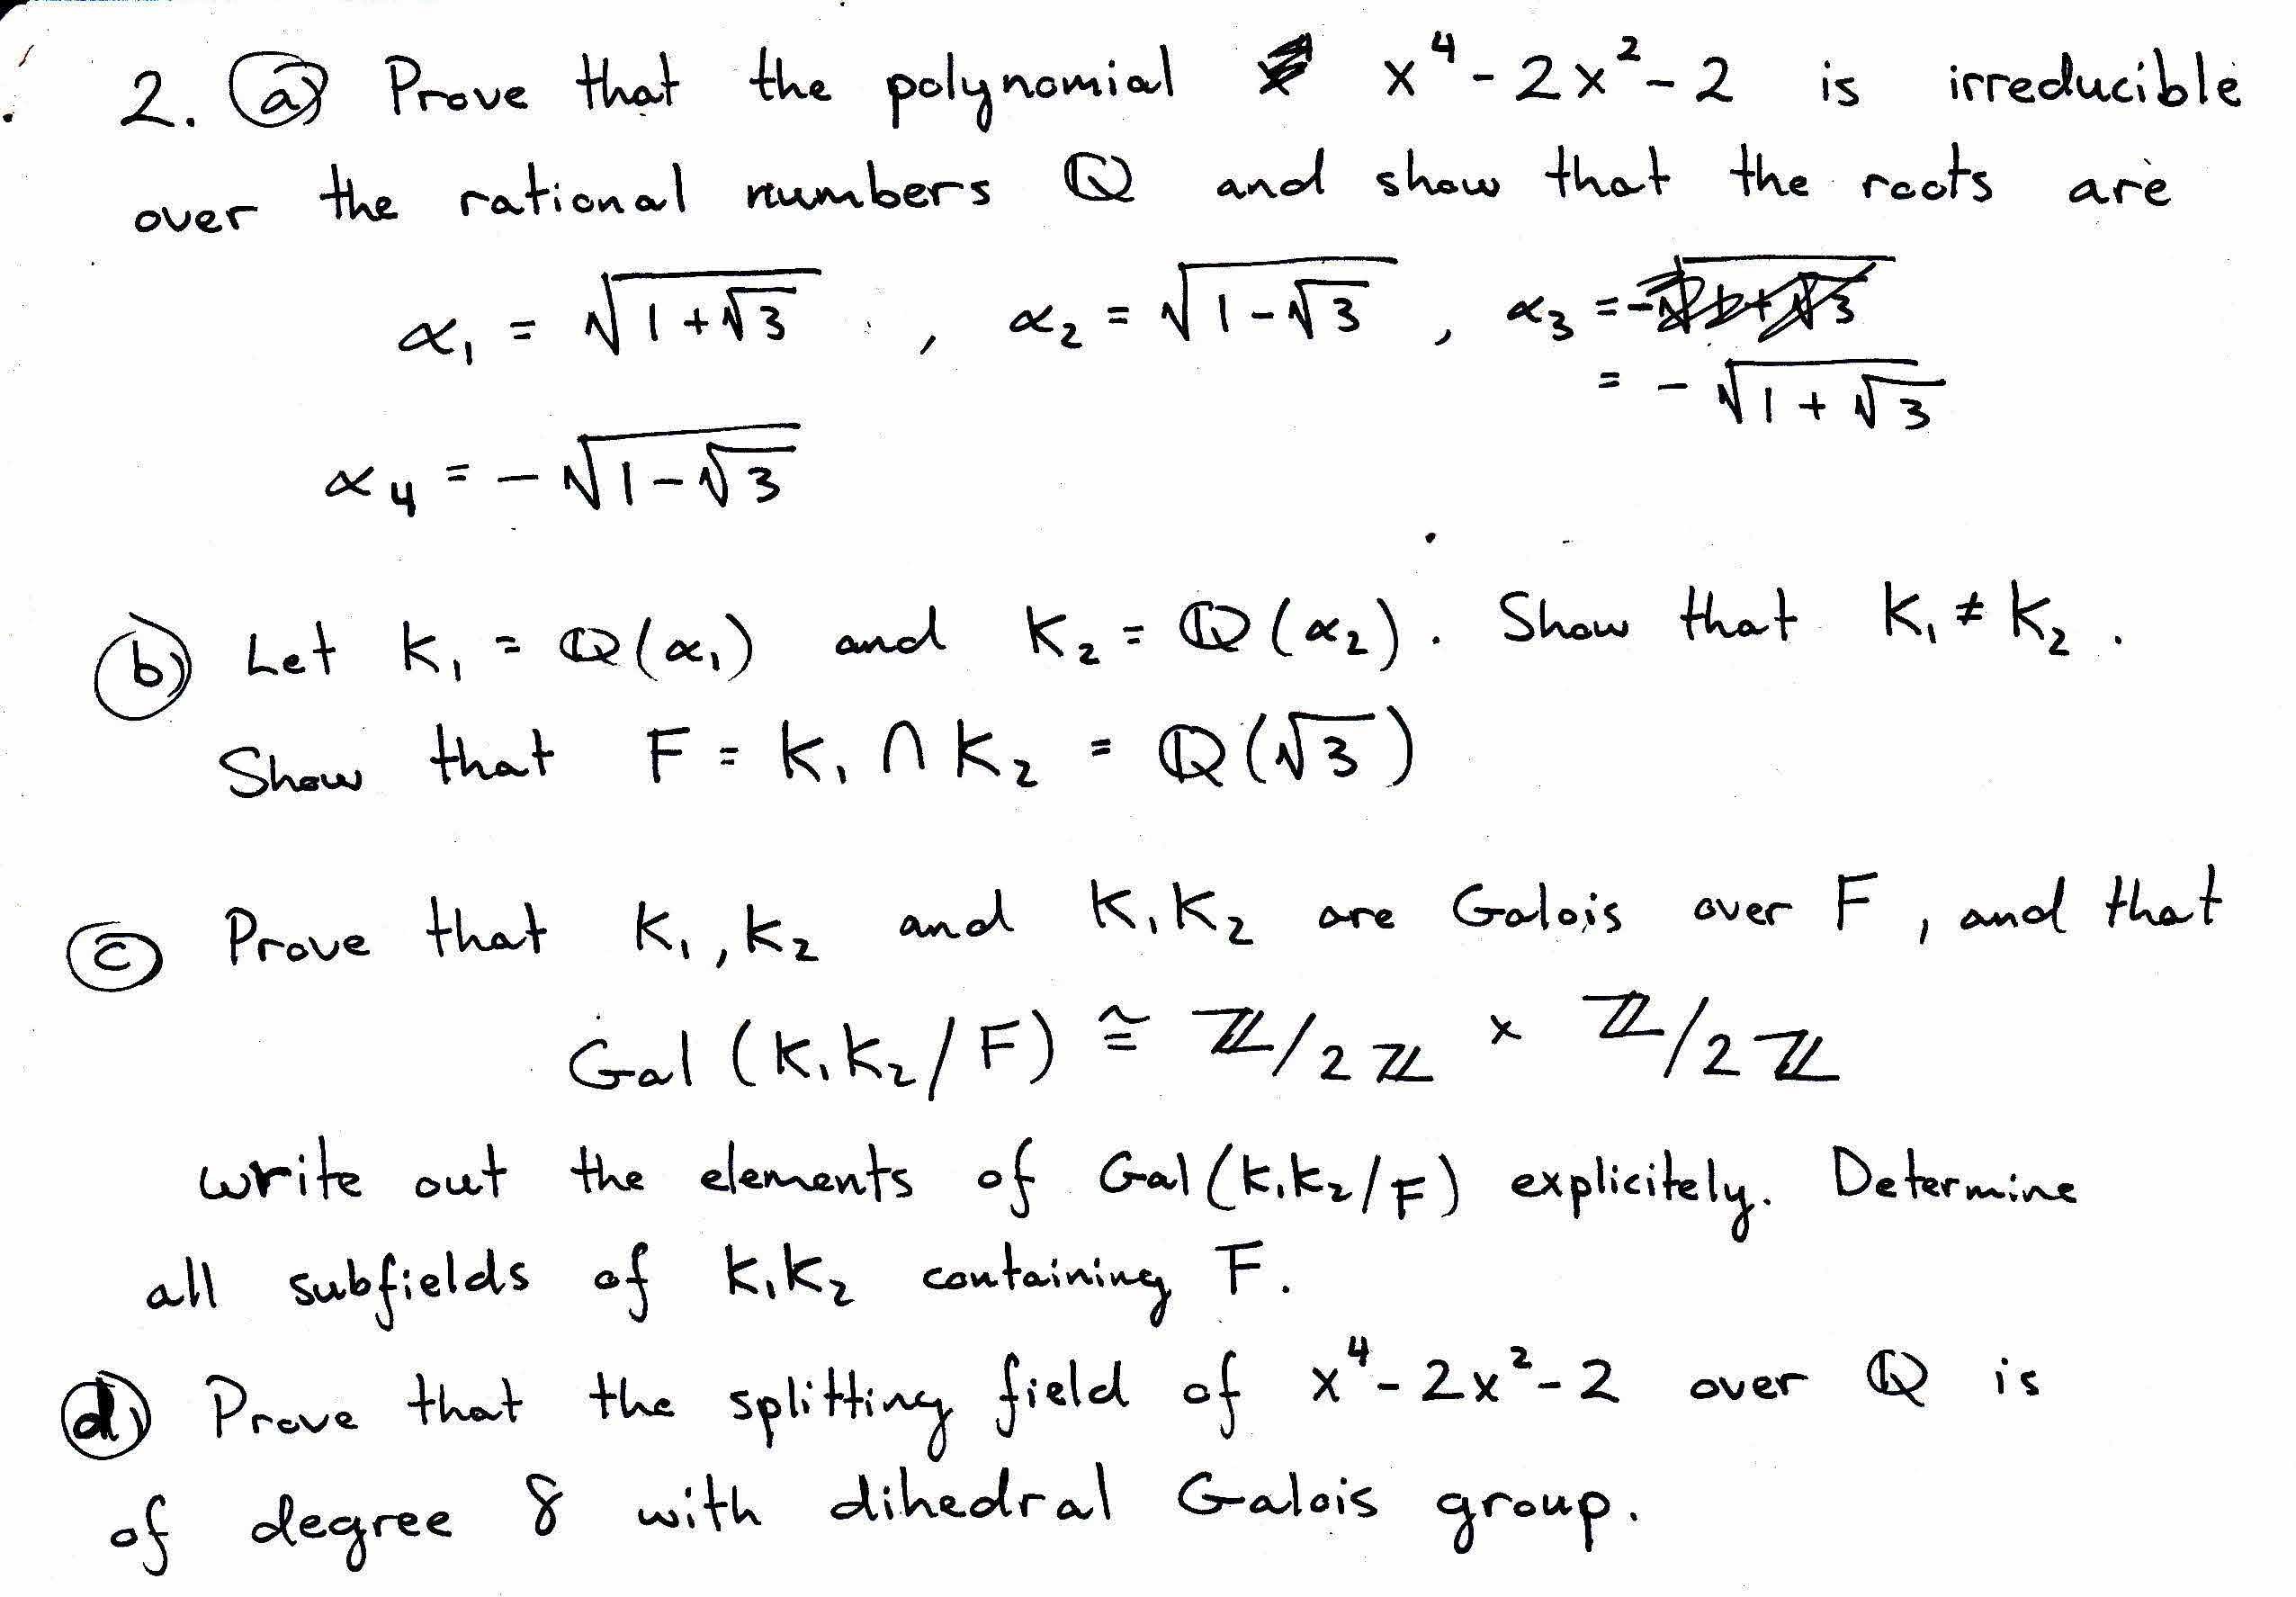 2. (a) Prove that the polynomial x⁴ - 2x² - 2 is irreducible
over the rational numbers ℚ and show that the roots are
α₁ = √(1+√3) , α₂ = √(1-√3) , α₃ = -
= -√(1+√3)
α₄ = -√(1-√3)
(b) Let K₁ = ℚ(α₁) and K₂ = ℚ(α₂). Show that K₁ ≠ K₂.
Show that F = K₁ ∩ K₂ = ℚ(√3)
(c) Prove that K₁, K₂ and K₁K₂ are Galois over F, and that
Gal(K₁K₂/F) ≅ ℤ/2ℤ × ℤ/2ℤ
write out the elements of Gal(K₁K₂/F) explicitely. Determine
all subfields of K₁K₂ containing F.
(d) Prove that the splitting field of x⁴ - 2x² - 2 over ℚ is
of degree 8 with dihedral Galois group.